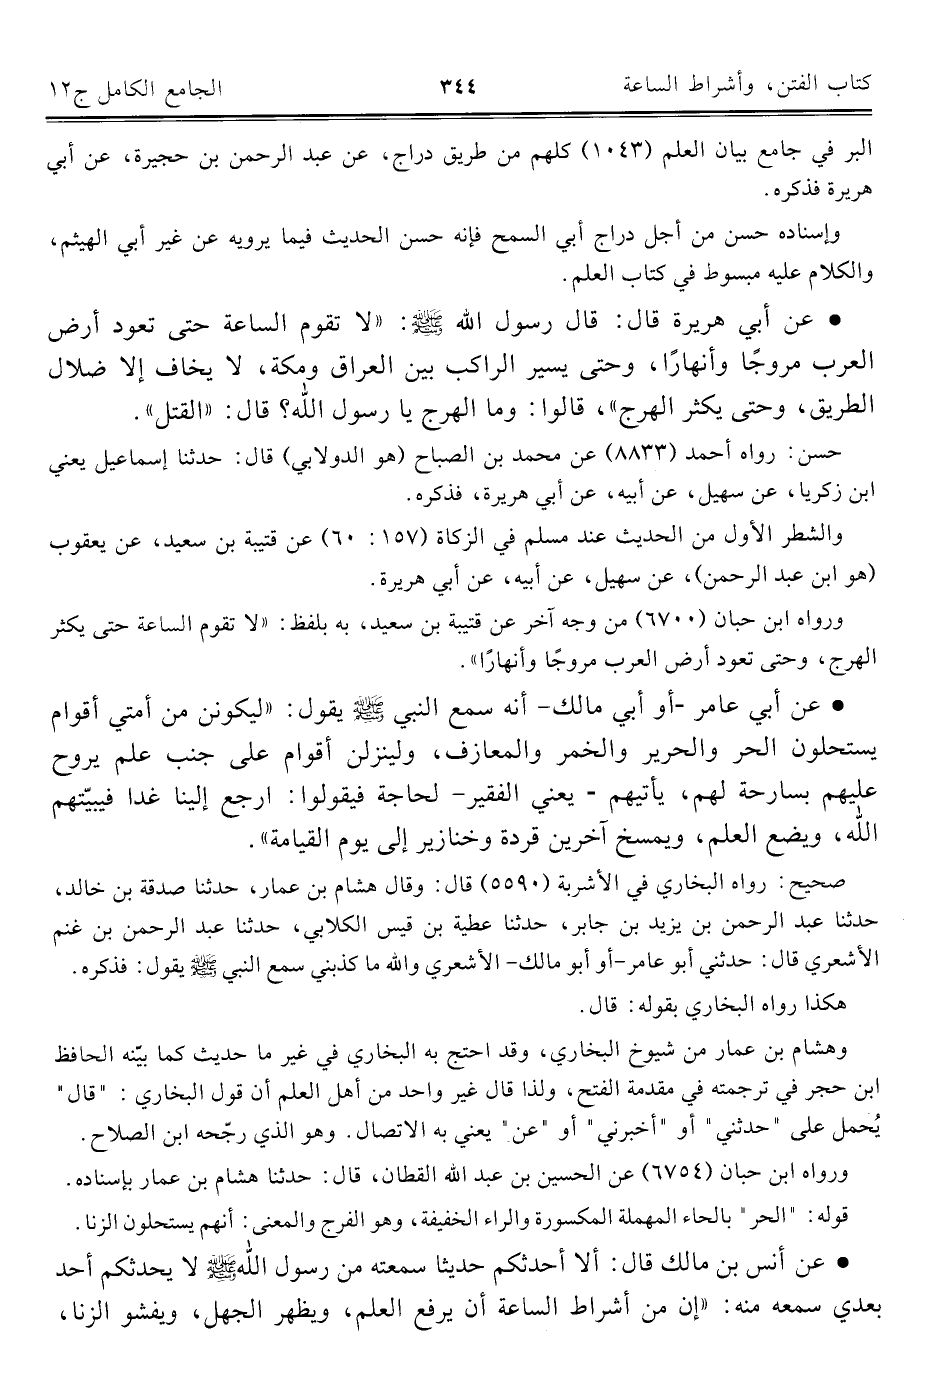 كتاب الفتن، وأشراط الساعة ٣٤٤ الجامع الكامل ج١٢
البر في جامع بيان العلم (١٠٤٣) كلهم من طريق دراج، عن عبد الرحمن بن حجيرة، عن أبي
هريرة فذكره.
وإسناده حسن من أجل دراج أبي السمح فإنه حسن الحديث فيما يرويه عن غير أبي الهيثم،
والكلام عليه مبسوط في كتاب العلم.
• عن أبي هريرة قال: قال رسول الله ﷺ: «لا تقوم الساعة حتى تعود أرض
العرب مروجًا وأنهارًا، وحتى يسير الراكب بين العراق ومكة، لا يخاف إلا ضلال
الطريق، وحتى يكثر الهرج»، قالوا: وما الهرج يا رسول الله؟ قال: «القتل».
حسن: رواه أحمد (٨٨٣٣) عن محمد بن الصباح (هو الدولابي) قال: حدثنا إسماعيل يعني
ابن زكريا، عن سهيل، عن أبيه، عن أبي هريرة، فذكره.
والشطر الأول من الحديث عند مسلم في الزكاة (١٥٧: ٦٠) عن قتيبة بن سعيد، عن يعقوب
(هو ابن عبد الرحمن)، عن سهيل، عن أبيه، عن أبي هريرة.
ورواه ابن حبان (٦٧٠٠) من وجه آخر عن قتيبة بن سعيد، به بلفظ: «لا تقوم الساعة حتى يكثر
الهرج، وحتى تعود أرض العرب مروجًا وأنهارًا».
• عن أبي عامر -أو أبي مالك- أنه سمع النبي ﷺ يقول: «ليكونن من أمتي أقوام
يستحلون الحر والحرير والخمر والمعازف، ولينزلن أقوام على جنب علم يروح
عليهم بسارحة لهم، يأتيهم - يعني الفقير- لحاجة فيقولوا: ارجع إلينا غدا فيبيّتهم
الله، ويضع العلم، ويمسخ آخرين قردة وخنازير إلى يوم القيامة».
صحيح: رواه البخاري في الأشربة (٥٥٩٠) قال: وقال هشام بن عمار، حدثنا صدقة بن خالد،
حدثنا عبد الرحمن بن يزيد بن جابر، حدثنا عطية بن قيس الكلابي، حدثنا عبد الرحمن بن غنم
الأشعري قال: حدثني أبو عامر-أو أبو مالك- الأشعري والله ما كذبني سمع النبي ﷺ يقول: فذكره.
هكذا رواه البخاري بقوله: قال.
وهشام بن عمار من شيوخ البخاري، وقد احتج به البخاري في غير ما حديث كما بيّنه الحافظ
ابن حجر في ترجمته في مقدمة الفتح، ولذا قال غير واحد من أهل العلم أن قول البخاري : "قال"
يُحمل على "حدثني" أو "أخبرني" أو "عن" يعني به الاتصال. وهو الذي رجّحه ابن الصلاح.
ورواه ابن حبان (٦٧٥٤) عن الحسين بن عبد الله القطان، قال: حدثنا هشام بن عمار بإسناده.
قوله: "الحر" بالحاء المهملة المكسورة والراء الخفيفة، وهو الفرج والمعنى: أنهم يستحلون الزنا.
• عن أنس بن مالك قال: ألا أحدثكم حديثا سمعته من رسول الله ﷺ لا يحدثكم أحد
بعدي سمعه منه: «إن من أشراط الساعة أن يرفع العلم، ويظهر الجهل، ويفشو الزنا،